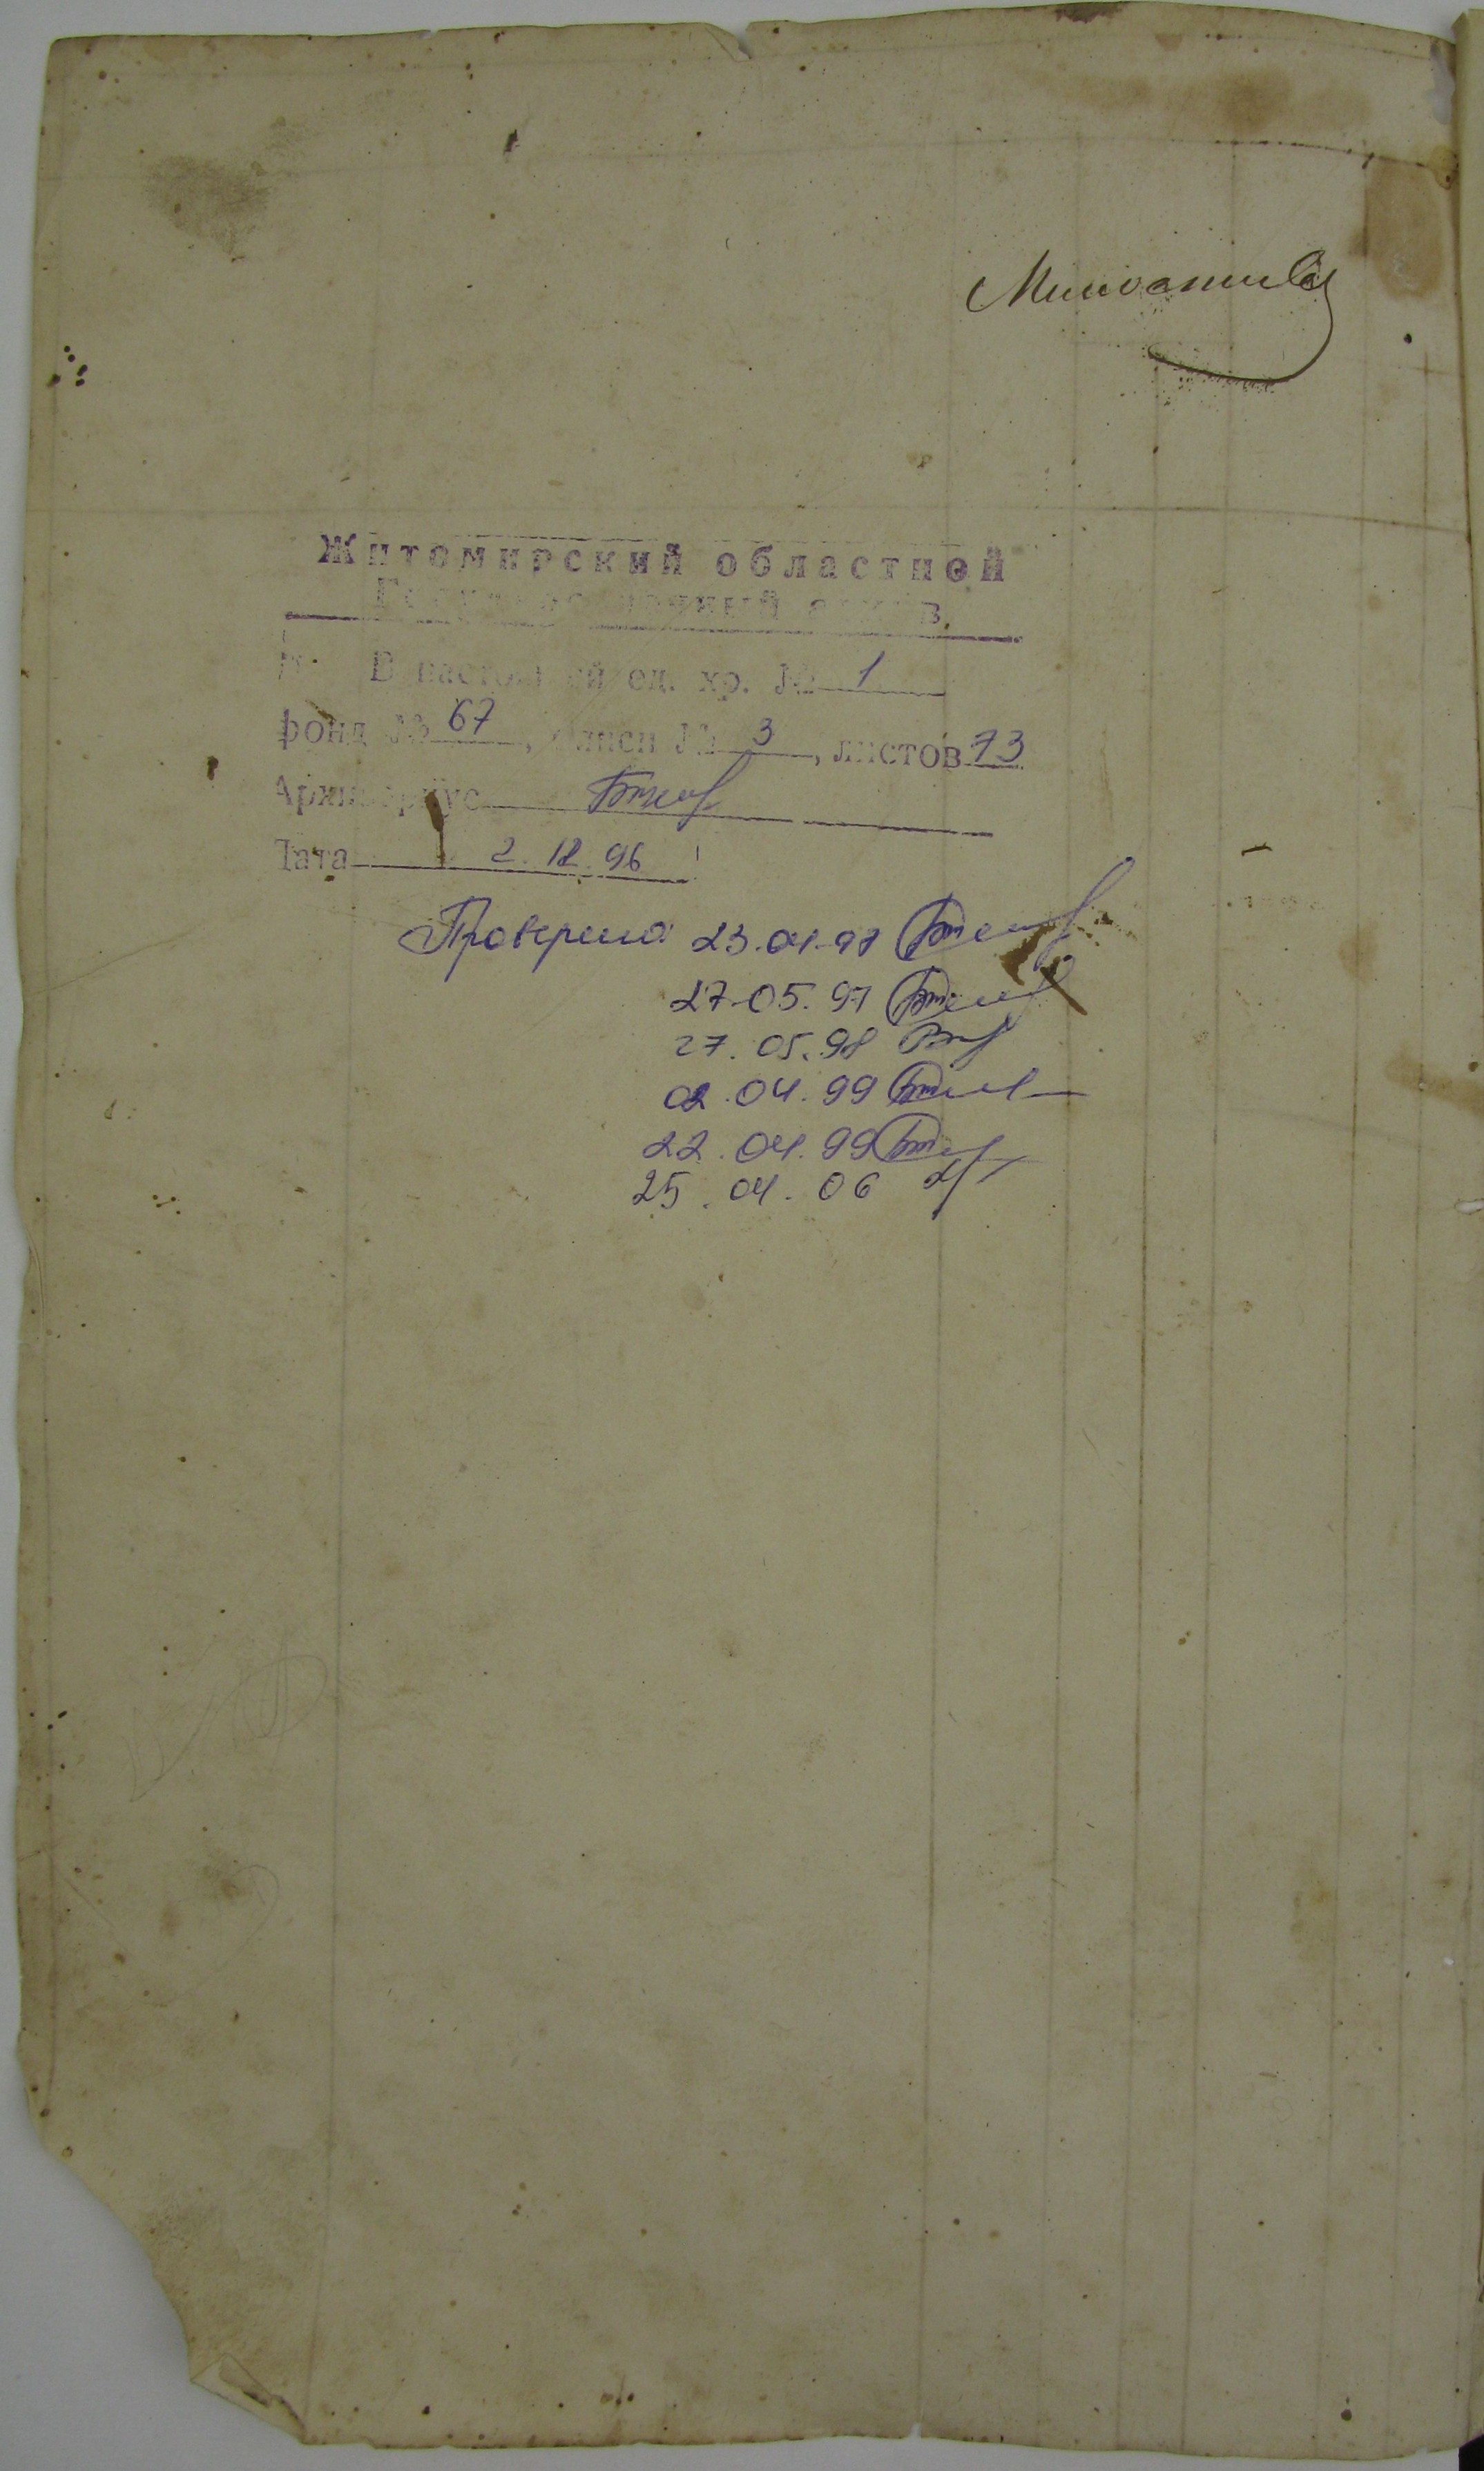 Житомирский областной
Государственный архив
В настоящей ед. хр. № 1
фонд № 67, описи № 3, листов 73
Архивариус
Дата 2.12.96
Проверено 23.04.97
27.05.97
27.05.98
02.04.99
22.04.99
25.04.06